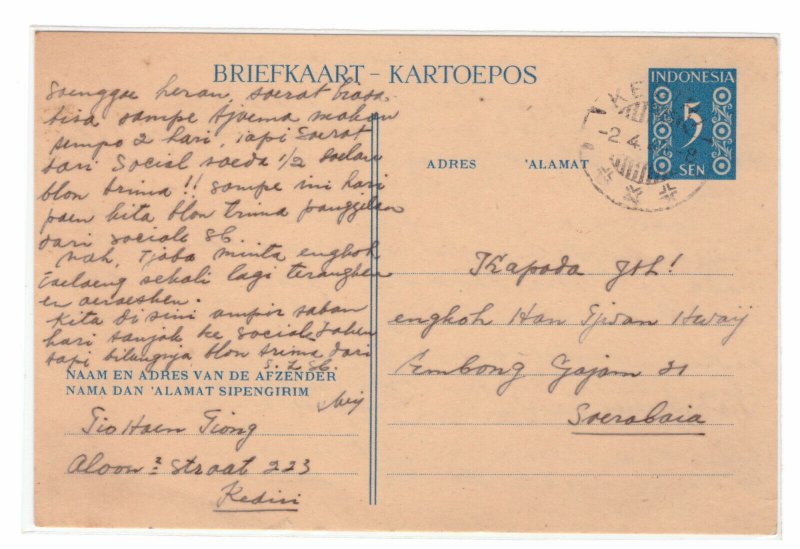 BRIEFKAART - KARTOEPOS
INDONESIA
5
SEN
KE
2.4.
ADRES 'ALAMAT
Soenggoe heran, soerat biasa
bisa sampe tjoema makan
tempo 2 hari, tapi Soerat
dari Social soeda 1/2 boelan
blon trima !! Sampe ini hari
paen kita blon trima panggilan
dari sociale Sb.
Nah, Tjoba minta engkoh
toeloeng sekali lagi terangken
en oeroesken.
Kita disini ampir saban
hari tanjak ke Social Zaken
tapi bilangnja blon trima dari
S. Z. Sb.
NAAM EN ADRES VAN DE AFZENDER
NAMA DAN 'ALAMAT SIPENGIRIM
Tio Hoen Tiong
Aloon 2 Straat 223
Kediri
Kapada Jth!
engkoh Han Tjwan Hwaij
Embong Gajam 21
Soerabaia